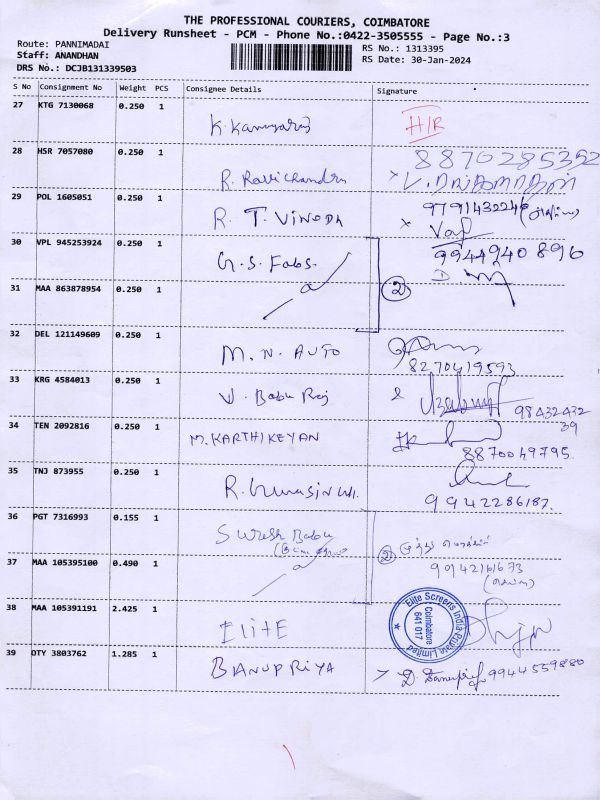 THE PROFESSIONAL COURIERS, COIMBATORE
Delivery Runsheet - PCM - Phone No.:0422-3505555 - Page No.:3
Route: PANNIMADAI
Staff: ANANDHAN
DRS No.: DCJB131339503
RS No.: 1313395
RS Date: 30-Jan-2024
S No Consignment No Weight PCS Consignee Details Signature
27 KTG 7130068 0.250 1 H/R
28 HSR 7057080 0.250 1 R. Ravichandran 8870285352
29 POL 1605051 0.250 1 R. T. VINODA
30 VPL 945253924 0.250 1 G.S. Fabs. 9944940896
31 MAA 863878954 0.250 1 2
32 DEL 121149609 0.250 1 M. N. AUTO 8270419593
33 KRG 4584013 0.250 1 V. Babu Raj 98432432
39
34 TEN 2092816 0.250 1 M. KARTHIKEYAN 8870049795
35 TNJ 873955 0.250 1 9942286187
36 PGT 7316993 0.155 1 Suresh Babu
37 MAA 105395100 0.490 1 2
38 MAA 105391191 2.425 1 ELITE
Elite Screens India Private Limited
Coimbatore
641 017
39 OTY 3803762 1.285 1 BANUPRIYA 9944559880